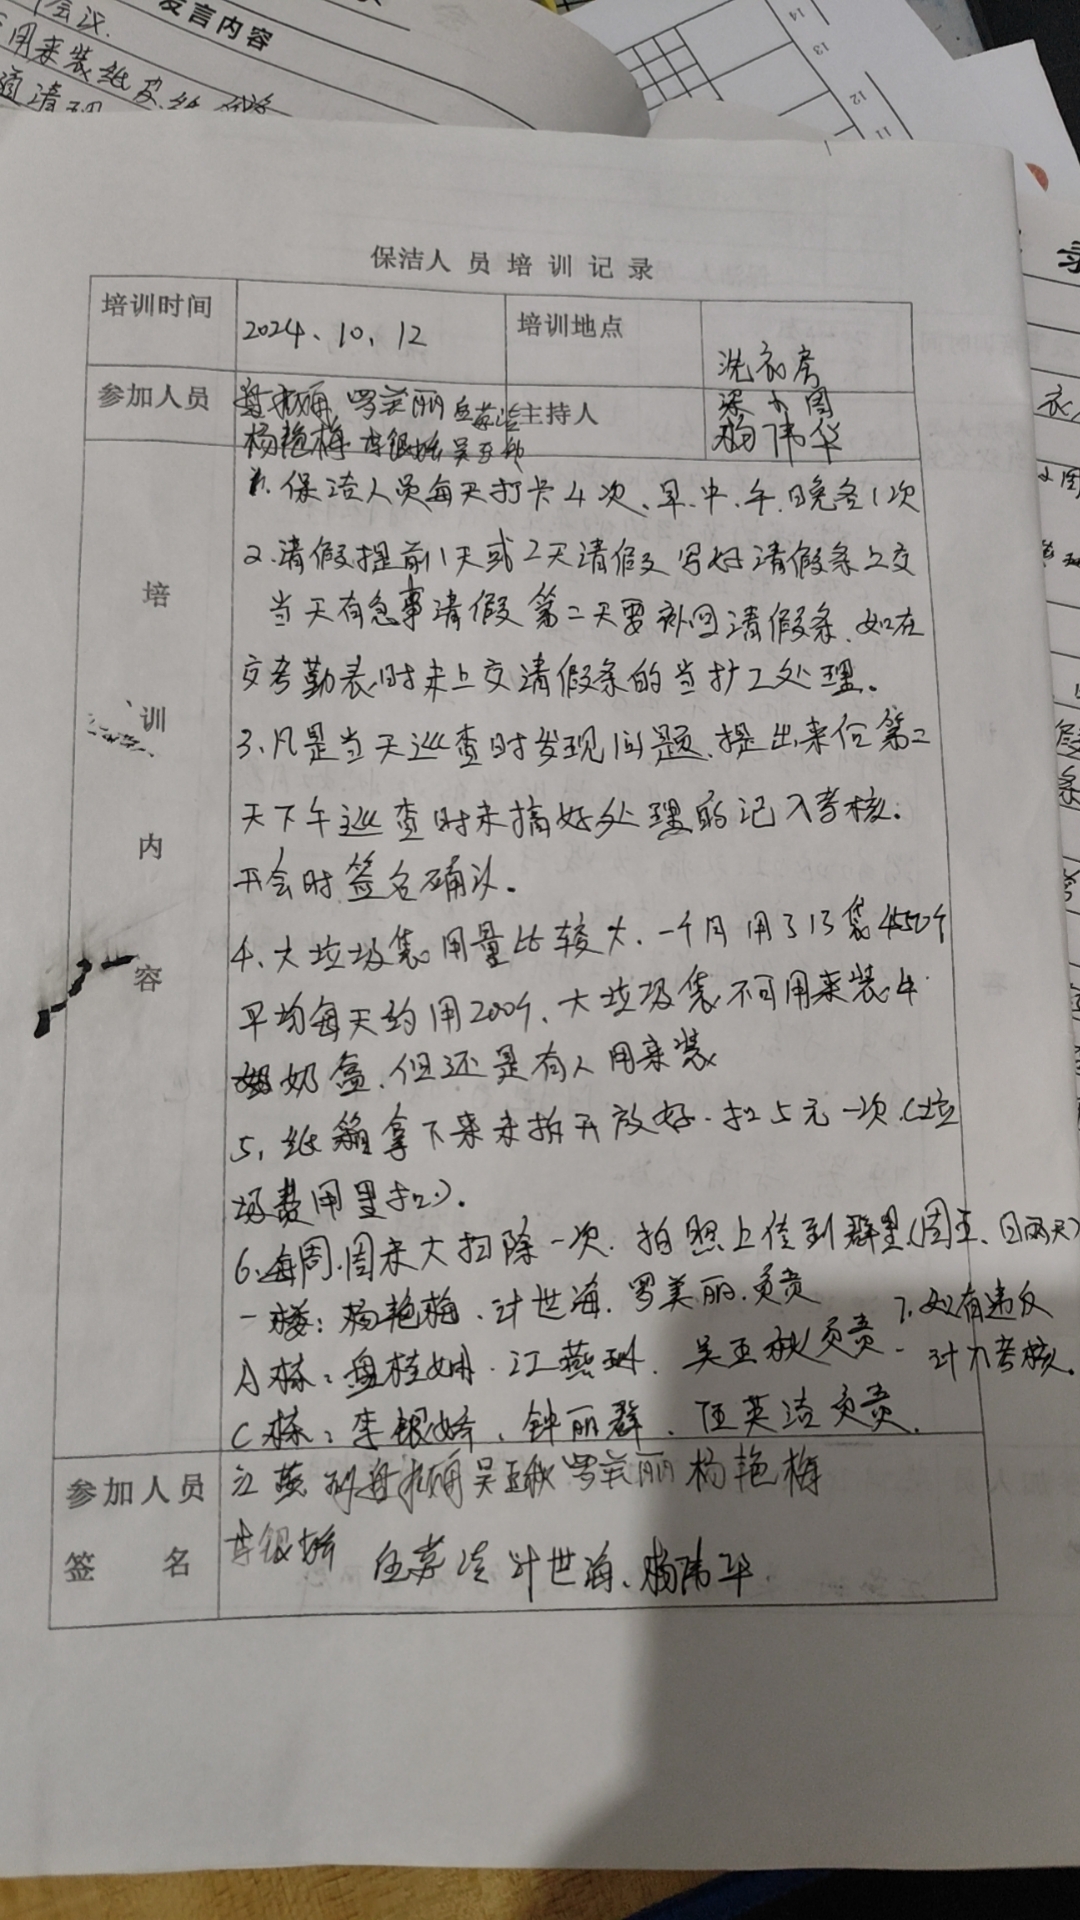 会议.
发言内容
用来装纸皮.纸
清
14
13
12
11
录
保洁人员培训记录
培训时间 2024、10、12 培训地点 洗衣房
参加人员 罗美丽 主持人 梁
杨艳梅 李银娇 吴亚秋 杨伟华
培训内容
1. 保洁人员每天打卡4次、早.中.午.晚各1次
2.请假提前1天或2天请假 写好请假条上交
当天有急事请假 第二天要补回请假条.如在
交考勤表时未上交请假条的当扩工处理。
3、凡是当天巡查时发现问题.提出来 第二
天下午巡查时未搞好处理的记入考核.
开会时签名确认.
4、大垃圾袋用量比较大.一个月用了13袋4550个
平均每天约用200个、大垃圾袋不可用来装牛
奶盒.但还是有人用来装
5, 纸箱拿下来未拆开放好.扣5元一次.(垃
圾费用里扣).
6.每周.周末大扫除一次.拍照上传到群里(周五、日两天)
一楼: 杨艳梅.计世海.罗美丽.负责
7.如有违反
A栋: 盘桂娴.江燕 . 吴亚秋负责
计入考核.
C栋: 李银娇、钟丽群、伍英洁负责.
参加人员签名
江燕 吴亚秋罗美丽杨艳梅
李银娇 伍英洁 计世海、杨伟华